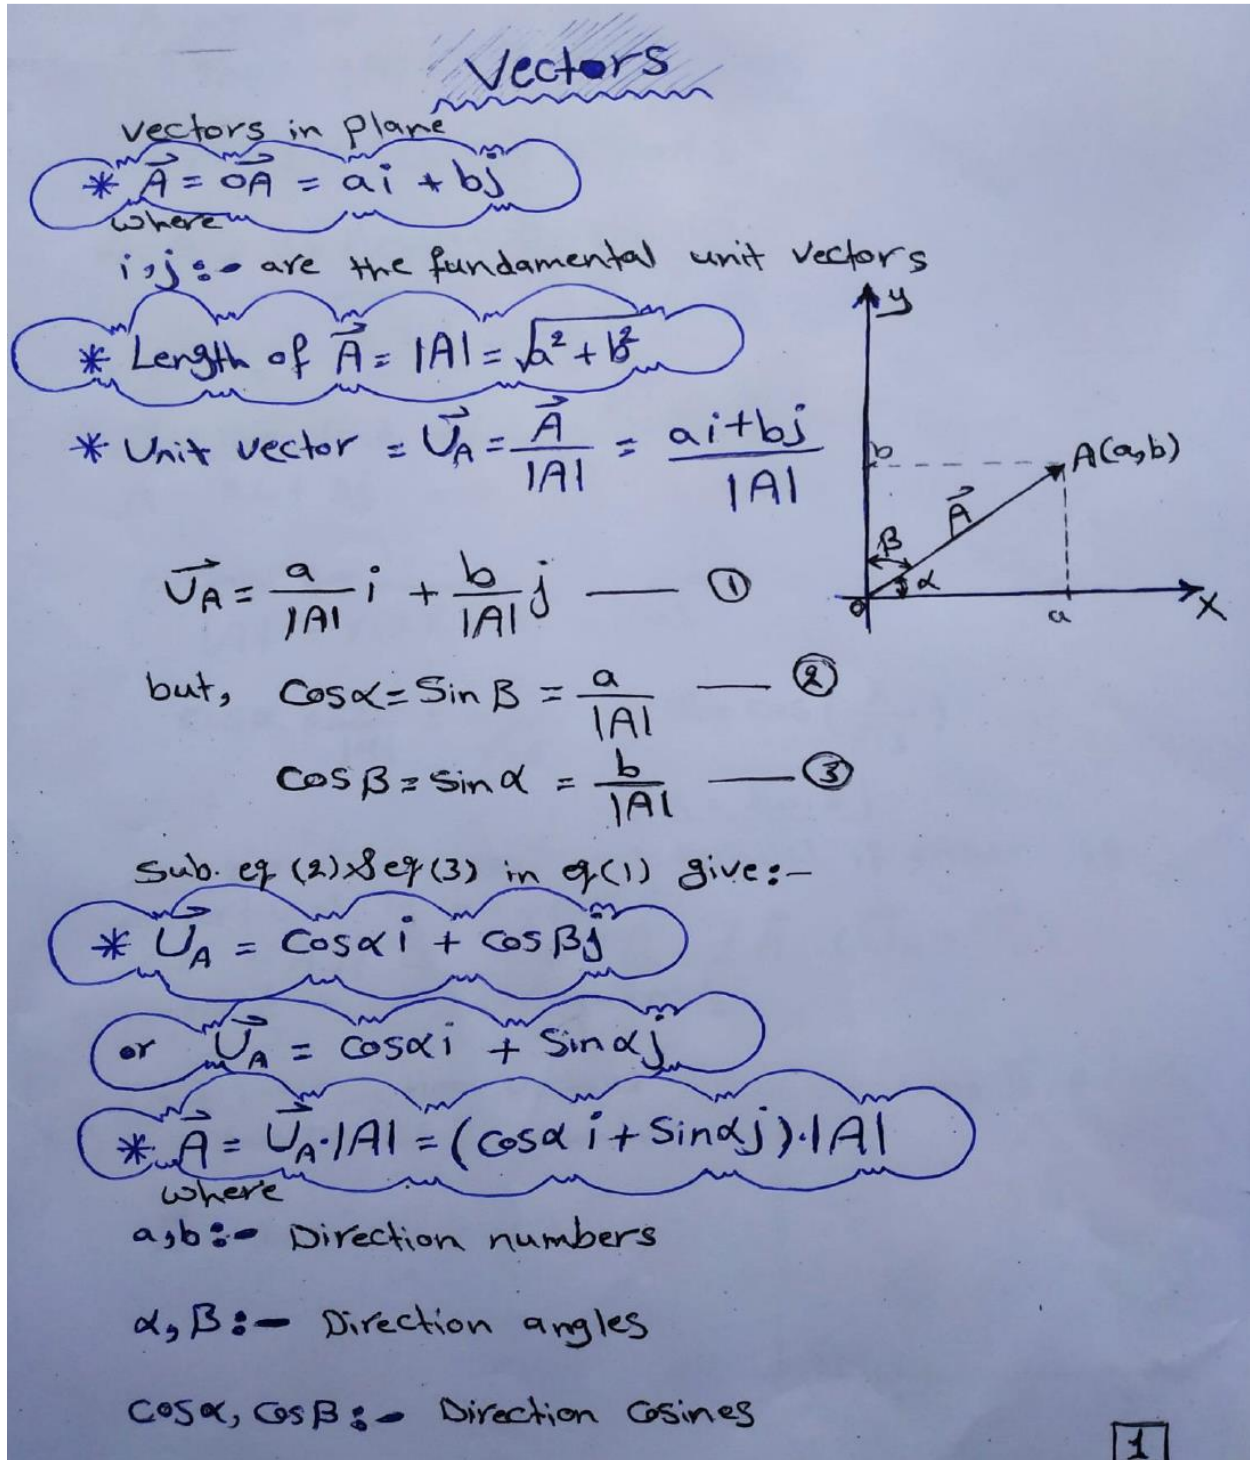 Vectors
vectors in plane
* A⃗ = OA⃗ = ai + bj
where
i,j:- are the fundamental unit vectors
* Length of A⃗ = |A| = √(a² + b²)
* Unit vector = U⃗_A = A⃗/|A| = (ai+bj)/|A|
y
b
A(a,b)
A⃗
β
α
o
a
X
U⃗_A = a/|A| i + b/|A| j —— ①
but, Cosα = Sin β = a/|A| —— ②
cos β = sin α = b/|A| —— ③
Sub. eq (2) & eq (3) in eq(1) give:-
* U⃗_A = Cosα i + cos βj
or U⃗_A = cosαi + Sinαj
* A⃗ = U⃗_A.|A| = (cosα i + Sinαj).|A|
where
a,b:- Direction numbers
α, β:- Direction angles
cosα, cosβ:- Direction Cosines
1